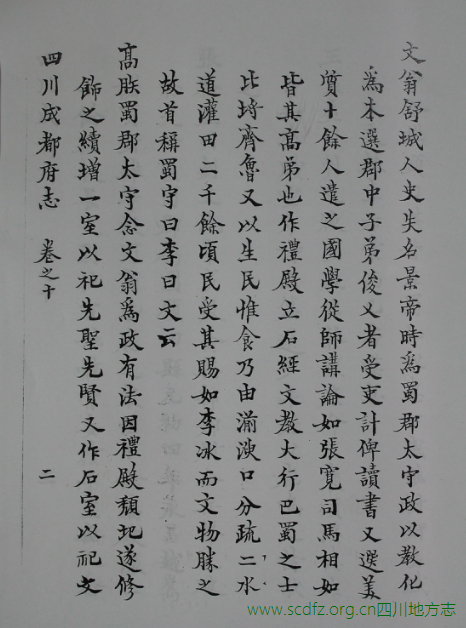 文翁舒城人史失名景帝時為蜀郡太守政以教化
為本選郡中子弟俊乂者受吏計俾讀書又選美
質十餘人遣之國學從師講論如張寬司馬相如
皆其高弟也作禮殿立石經文教大行巴蜀之士
比埒齊魯又以生民惟食乃由湔洩口分疏二水
道灌田二千餘頃民受其賜如李冰而文物勝之
故首稱蜀守曰李曰文云
高䀢蜀郡太守念文翁為政有法因禮殿頹圯遂修
飾之續增一室以祀先聖先賢又作石室以祀文
四川成都府志 卷之十 二
www.scdfz.org.cn四川地方志